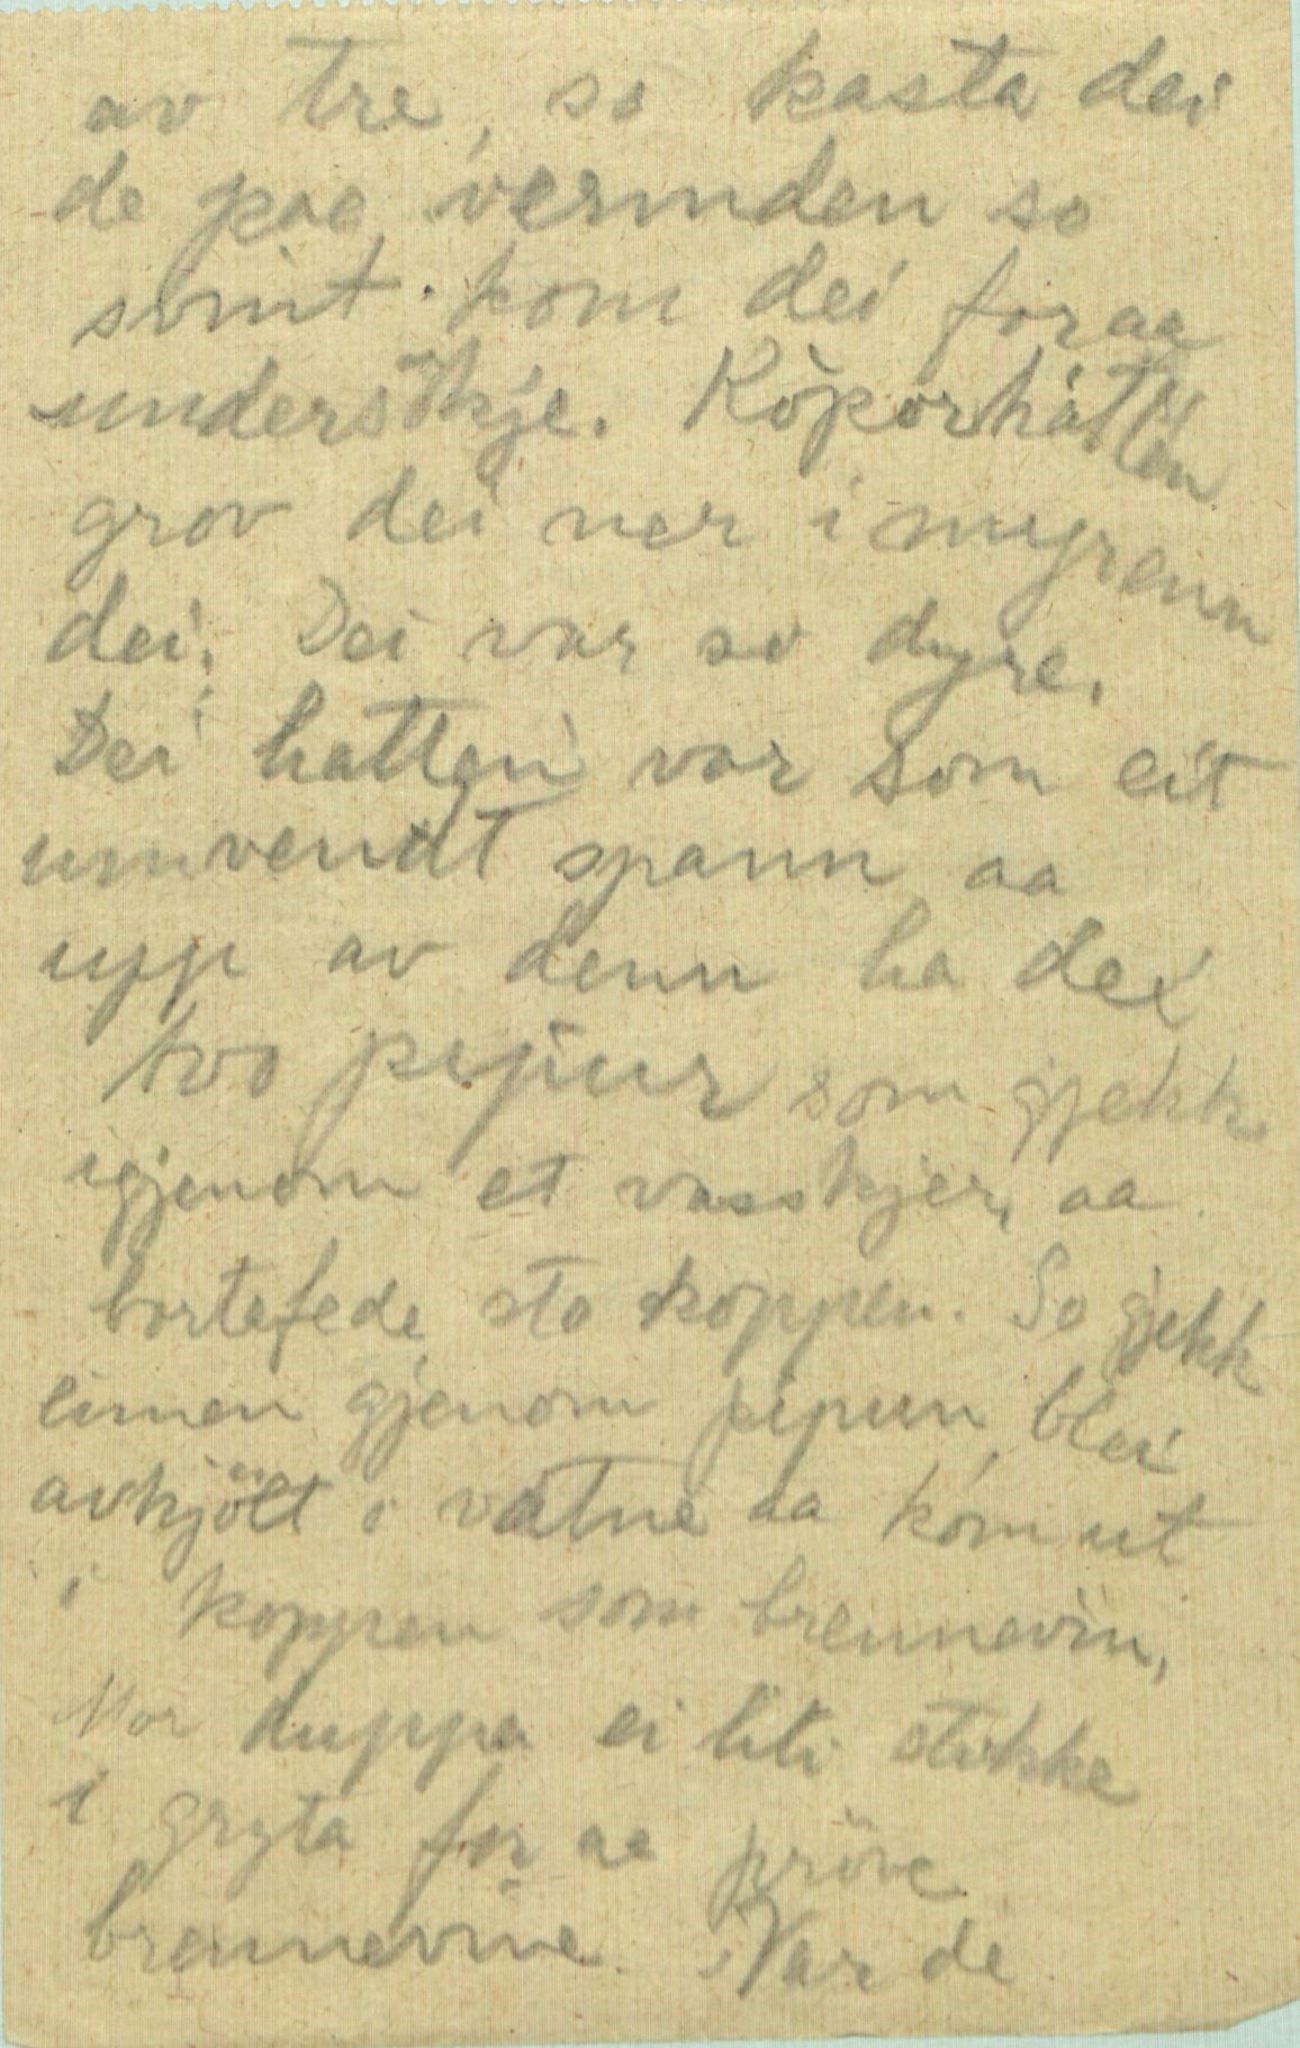 av tre, so kasta dei
de paa vermden so
somt kom dei for aa
undersökje. Kòpòrhatten
grov dei ner i myrenn
dei. Dei var so dyre.
Dei hatten var som eit
umvendt spann aa
upp av denn ha dei
tvo pipur som gjekk
igjenom et vasskjer, aa
bortefede sto koppen. So gjekk
eimen gjenom pipun, blei
avkjölt i vatne aa kom ut
i koppen som brennevin,
Mor duppa ei liti stikke
i gryta for aa pröve
brennevine. Var de